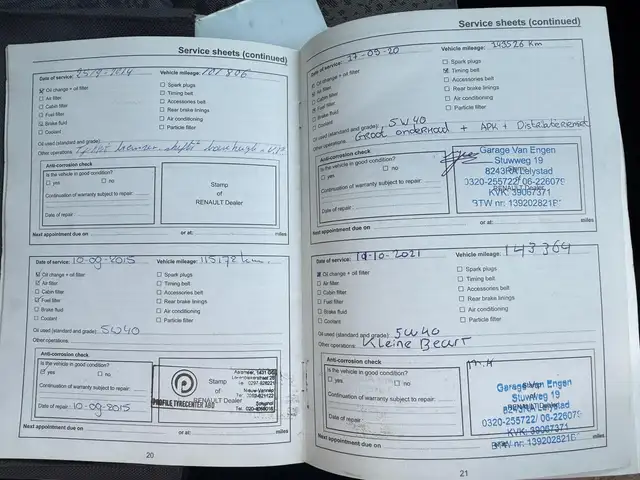 Service sheets (continued)
Date of service: 25/9-2014 Vehicle mileage: 101 806
Oil change + oil filter
Air filter
Cabin filter
Fuel filter
Brake fluid
Coolant
Spark plugs
Timing belt
Accessories belt
Rear brake linings
Air conditioning
Particle filter
Oil used (standard and grade):
Other operations:
Anti-corrosion check
Is the vehicle in good condition?
yes no
Continuation of warranty subject to repair:
Date of repair:
Stamp
of
RENAULT Dealer
Next appointment due on or at: miles
Date of service: 10-09-2015 Vehicle mileage: 115178 km.
Oil change + oil filter
Air filter
Cabin filter
Fuel filter
Brake fluid
Coolant
Spark plugs
Timing belt
Accessories belt
Rear brake linings
Air conditioning
Particle filter
Oil used (standard and grade): 5W40
Other operations:
Anti-corrosion check
Is the vehicle in good condition?
yes no
Continuation of warranty subject to repair:
Date of repair: 10-09-2015
Stamp
of
RENAULT Dealer
PROFILE TYRECENTER ABO
Aalsmeer, 1431 GG
Nieuw-Vennep
Schiphol
Next appointment due on or at: miles
20
Service sheets (continued)
Date of service: 17-09-20 Vehicle mileage: Km
Oil change + oil filter
Air filter
Cabin filter
Fuel filter
Brake fluid
Coolant
Spark plugs
Timing belt
Accessories belt
Rear brake linings
Air conditioning
Particle filter
Oil used (standard and grade): 5W40
Other operations: Groot onderhoud + APK +
Anti-corrosion check
Is the vehicle in good condition?
yes no
Continuation of warranty subject to repair:
Date of repair:
Garage Van Engen
Stuwweg 19
8243RX Lelystad
RENAULT Dealer
0320-255722/ 06-226079
KVK: 39067371
BTW nr: 139202821B
Next appointment due on or at: miles
Date of service: 10-2021 Vehicle mileage: 143364
Oil change + oil filter
Air filter
Cabin filter
Fuel filter
Brake fluid
Coolant
Spark plugs
Timing belt
Accessories belt
Rear brake linings
Air conditioning
Particle filter
Oil used (standard and grade): 5W40
Other operations: Kleine Beurt
Anti-corrosion check
Is the vehicle in good condition?
yes no
Continuation of warranty subject to repair:
Date of repair:
Garage Van Engen
Stuwweg 19
8243RX Lelystad
0320-255722/ 06-226079
KVK: 39067371
BTW nr: 139202821B
Next appointment due on or at: miles
21